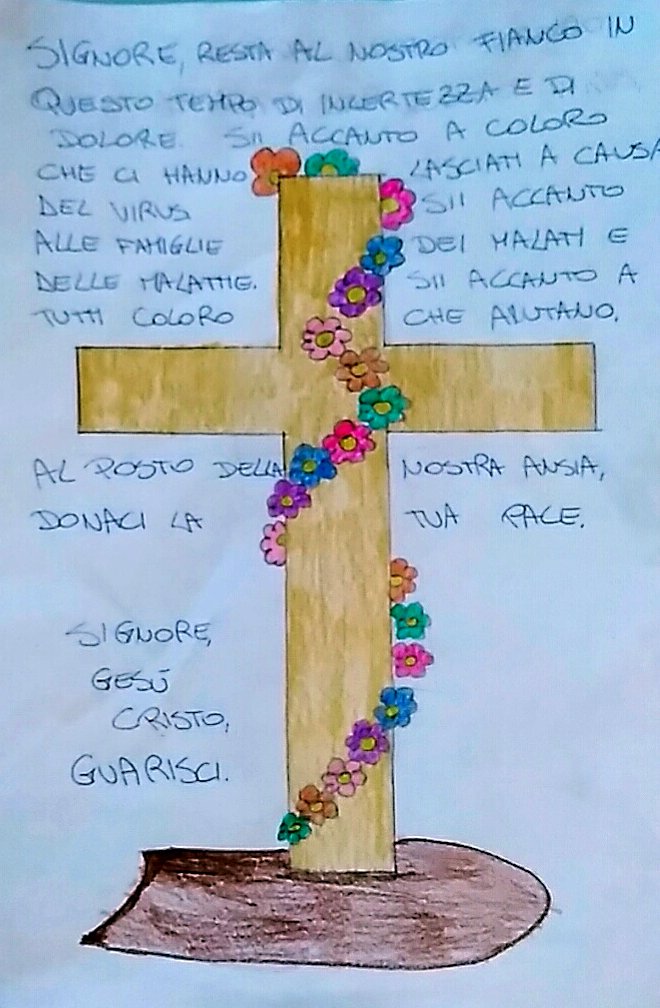 SIGNORE, RESTA AL NOSTRO FIANCO IN
QUESTO TEMPO DI INCERTEZZA E DI
DOLORE. SII ACCANTO A COLORO
CHE CI HANNO LASCIATI A CAUSA
DEL VIRUS SII ACCANTO
ALLE FAMIGLIE DEI MALATI E
DELLE MALATTIE. SII ACCANTO A
TUTTI COLORO CHE AIUTANO.
AL POSTO DELLA NOSTRA ANSIA,
DONACI LA TUA PACE.
SIGNORE,
GESÙ
CRISTO,
GUARISCI.